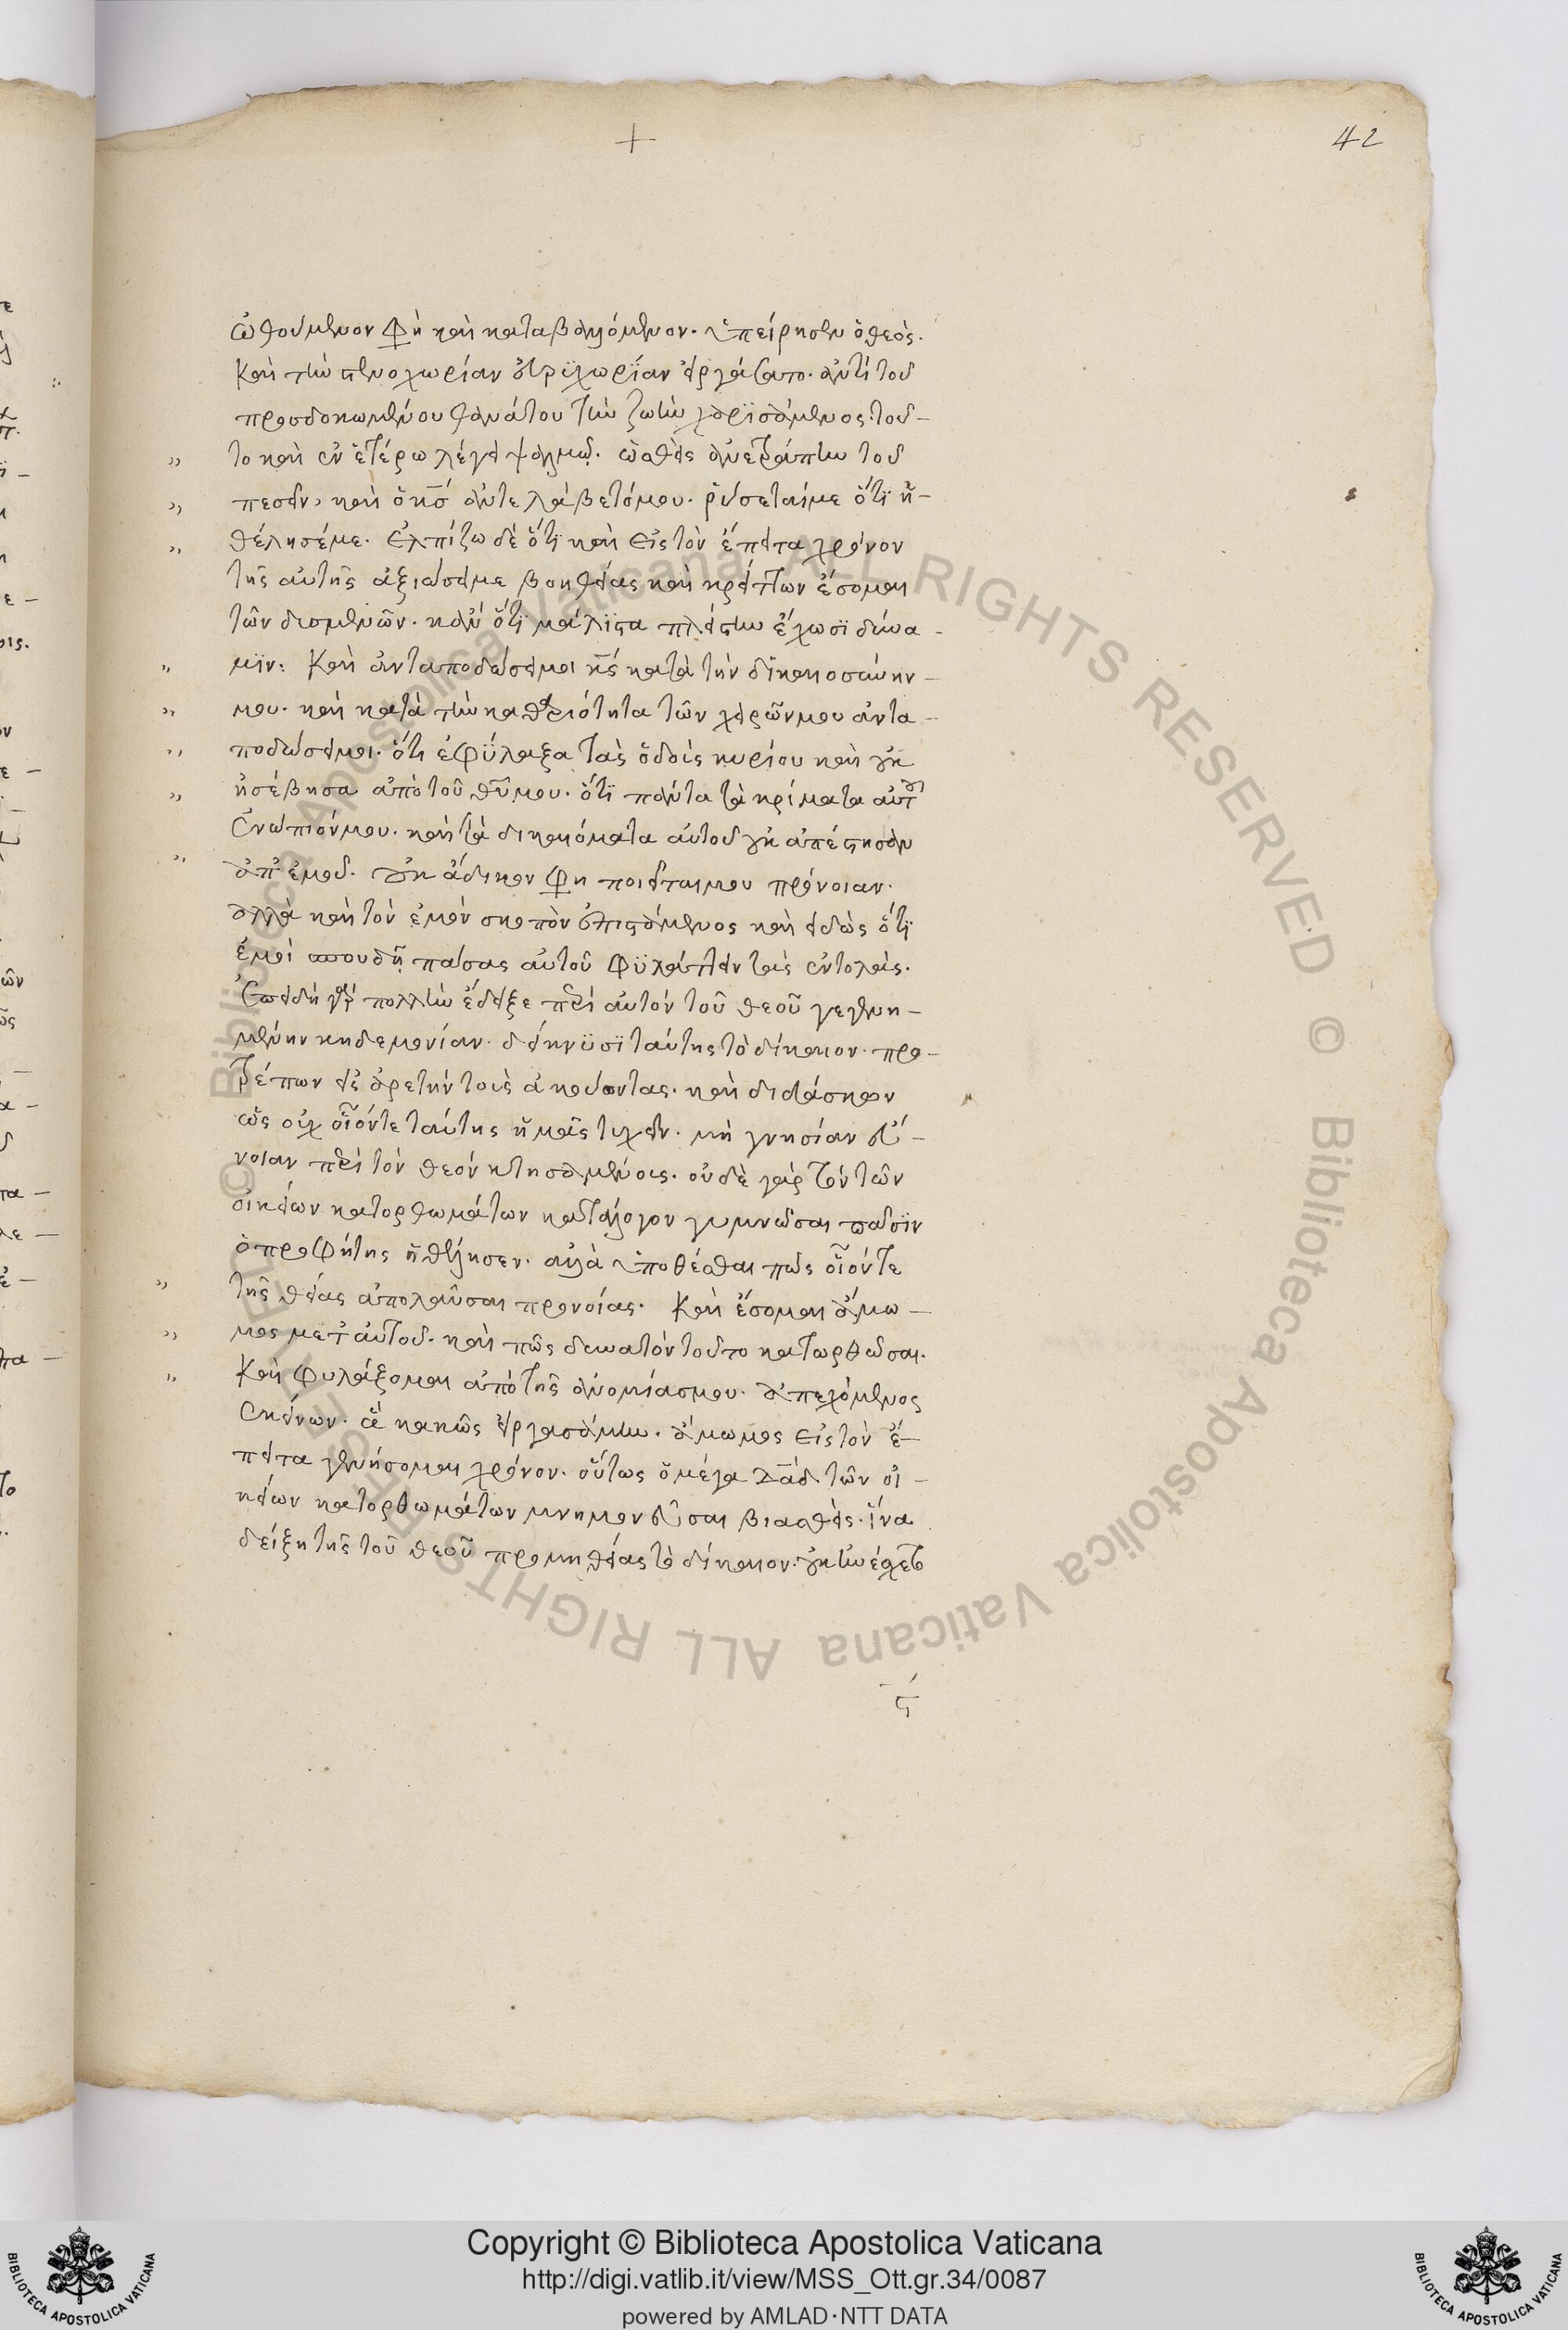 42
ὠθούμενον φη καὶ καταβαλλόμενον. ὑπείρησεν ὁ θεός.
καὶ τὴν στενοχωρίαν εὐρυχωρίαν εἰργάσατο. ἀντὶ τοῦ
προσδοκωμένου θανάτου τὴν ζωὴν χαρισάμενος. τοῦ-
το καὶ ἐν ἑτέρω λέγει ψαλμῷ. ὠσθεὶς ἀνετράπην τοῦ
πεσεῖν, καὶ ὁ κσ ἀντελάβετό μου. ῥύσεταί με ὅτι ἠ-
θέλησέ με. ἐλπίζω δὲ ὅτι καὶ εἰς τὸν ἔπειτα χρόνον
τῆς αὐτῆς ἀξιώσει με βοηθείας καὶ κρείττων ἔσομαι
τῶν δυσμενῶν. κἀν ὅτι μάλιστα πλείστην ἔχωσι δύνα-
μιν: Καὶ ἀνταποδώσει μοι κς κατὰ τὴν δικαιοσύνην
μου. καὶ κατὰ τὴν καθαριότητα τῶν χειρῶν μου ἀντα-
ποδώσει μοι. ὅτι ἐφύλαξα τὰς ὁδοὺς κυρίου καὶ οὐκ
ἠσέβησα ἀπὸ τοῦ θυ μου. ὅτι πάντα τὰ κρίματα αὐτοῦ
ἐνώπιόν μου. καὶ τὰ δικαιόματα αὐτοῦ οὐκ ἀπέστησαν
ἀπ' ἐμοῦ. οὐκ ἄδικον φη ποιεῖται μου πρόνοιαν.
ἀλλὰ καὶ τὸν ἐμὸν σκοπὸν ἐπιστάμενος καὶ εἰδὼς ὅτι
ἐμοὶ σπουδὴ πάσας αὐτοῦ φυλάττειν τὰς ἐντολάς.
Ἐπειδὴ γὰρ πολλὴν ἔδειξε περὶ αὐτὸν τοῦ θεοῦ γεγενη-
μένην κηδεμονίαν. δείκνυσι ταύτης τὸ δίκαιον. προ-
τρέπων εἰς ἀρετὴν τοὺς ἀκούοντας. καὶ διδάσκων
ὡς οὐχ οἷόν τε ταύτης ἡμᾶς τυχεῖν. μὴ γνησίαν εὔ-
νοιαν περὶ τὸν θεὸν κτησαμένοις. οὐδὲ γὰρ τὸν τῶν
οἰκείων κατορθωμάτων κατάλογον γυμνῶσαι πᾶσιν
ὁ προφήτης ἠθέλησεν. ἀλλὰ ὑποθέσθαι πῶς οἷόν τε
τῆς θείας ἀπολαῦσαι προνοίας. Καὶ ἔσομαι ἄμω-
μος μετ' αὐτοῦ. καὶ πῶς δυνατὸν τοῦτο κατωρθῶσαι.
Καὶ φυλάξομαι ἀπὸ τῆς ἀνομίας μου. ἀπεχόμενος
ἐκείνων. ἃ κακῶς εἰργασάμην. ἄμωμος εἰς τὸν ἔ-
πειτα γενήσομαι χρόνον. οὕτως ὁ μέγα δαδ τῶν οἰ-
κείων κατορθωμάτων μνημονεῦσαι βιασθείς. ἵνα
δείξη τῆς τοῦ θεοῦ προμηθείας τὸ δίκαιον. οὐκ ἠνέσχετο
ς
Copyright © Biblioteca Apostolica Vaticana
http://digi.vatlib.it/view/MSS_Ott.gr.34/0087
powered by AMLAD·NTT DATA